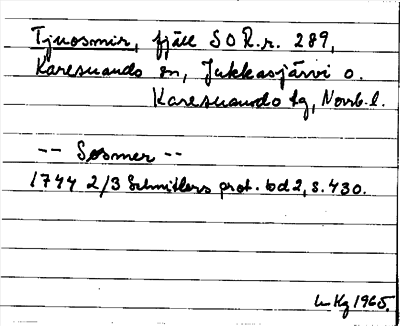 Tjuosmir, fjäll SO R.r. 289,
Karesuando sn, Jukkasjärvi o.
Karesuando tg, Norrb. l.
-- Sosmer --
1744 2/3 Schnitlers prot. bd 2, s. 430.
Kg 1965.